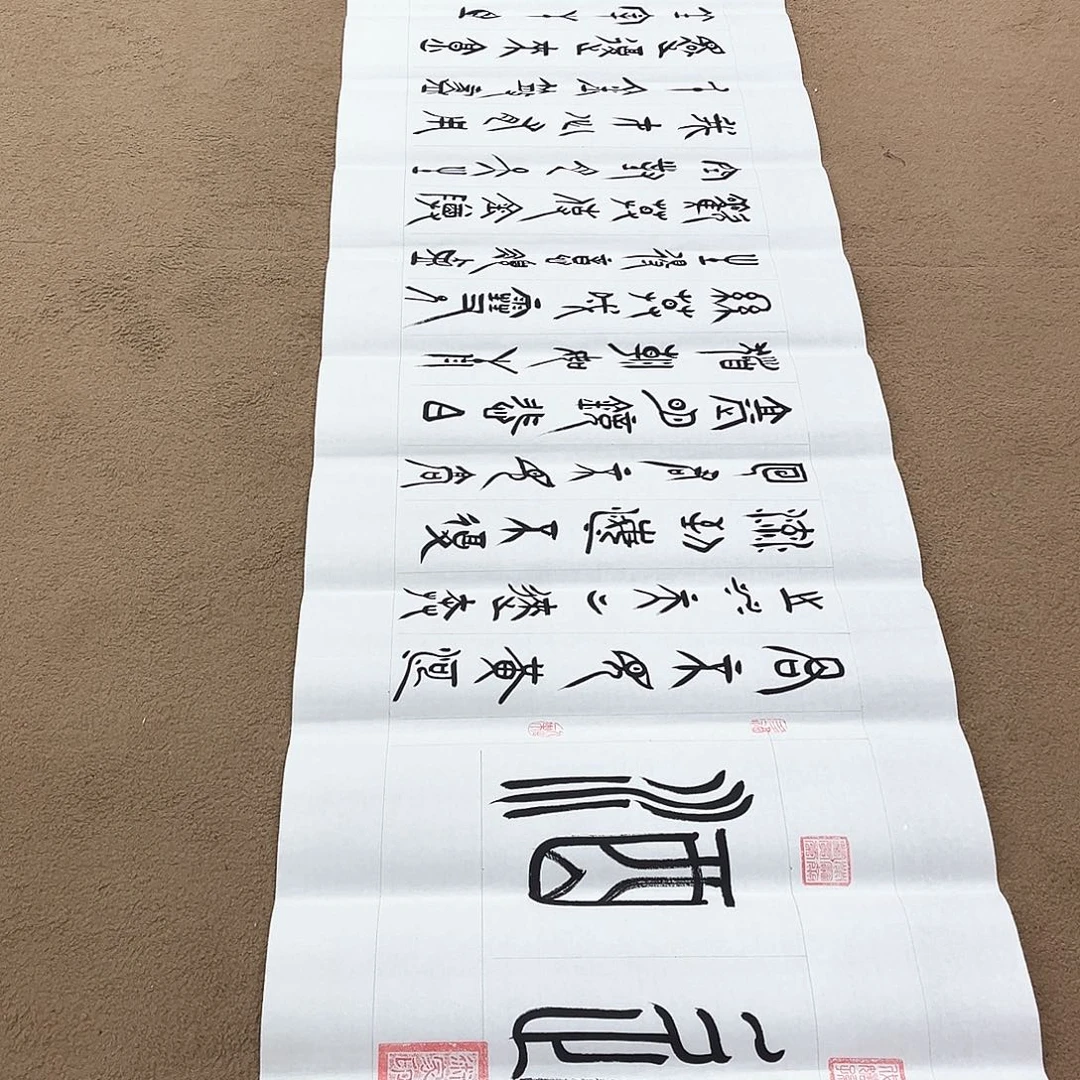 酒
君不見黃河
之水天上來奔
流到海不復
回君不見高
堂明鏡悲白
髮朝如青
絲暮成雪人
生得意須盡
歡莫使金樽
空對月天生
我材必有用
千金散盡
還復來烹
羊宰牛且